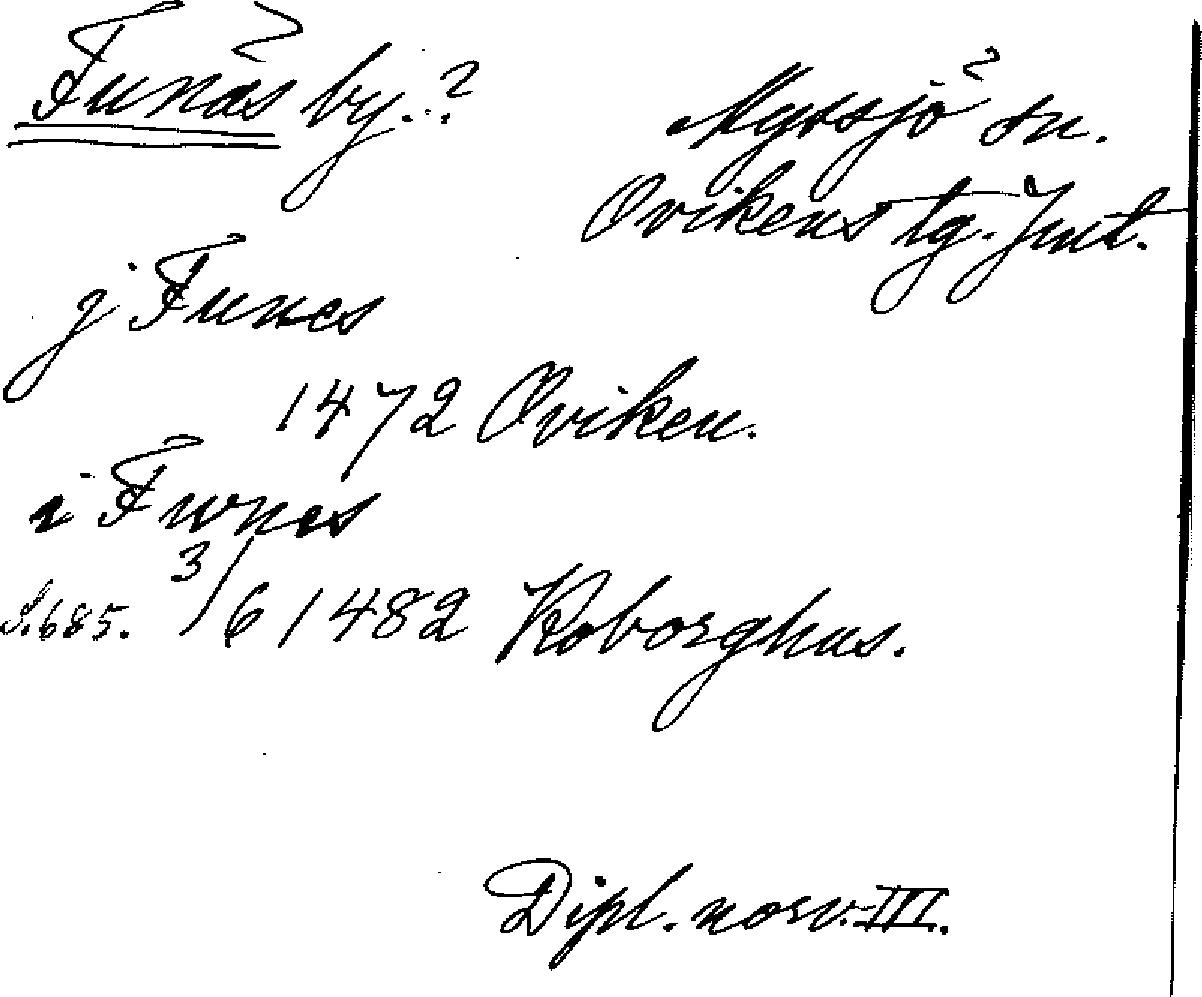 Funäs by.? Myssjö sn.
Ovikens tg. Jmt.
j Funes
1472 Oviken.
i Fwnes
S. 685. 3/6 1482 Roborghus.
Dipl. norv. III.